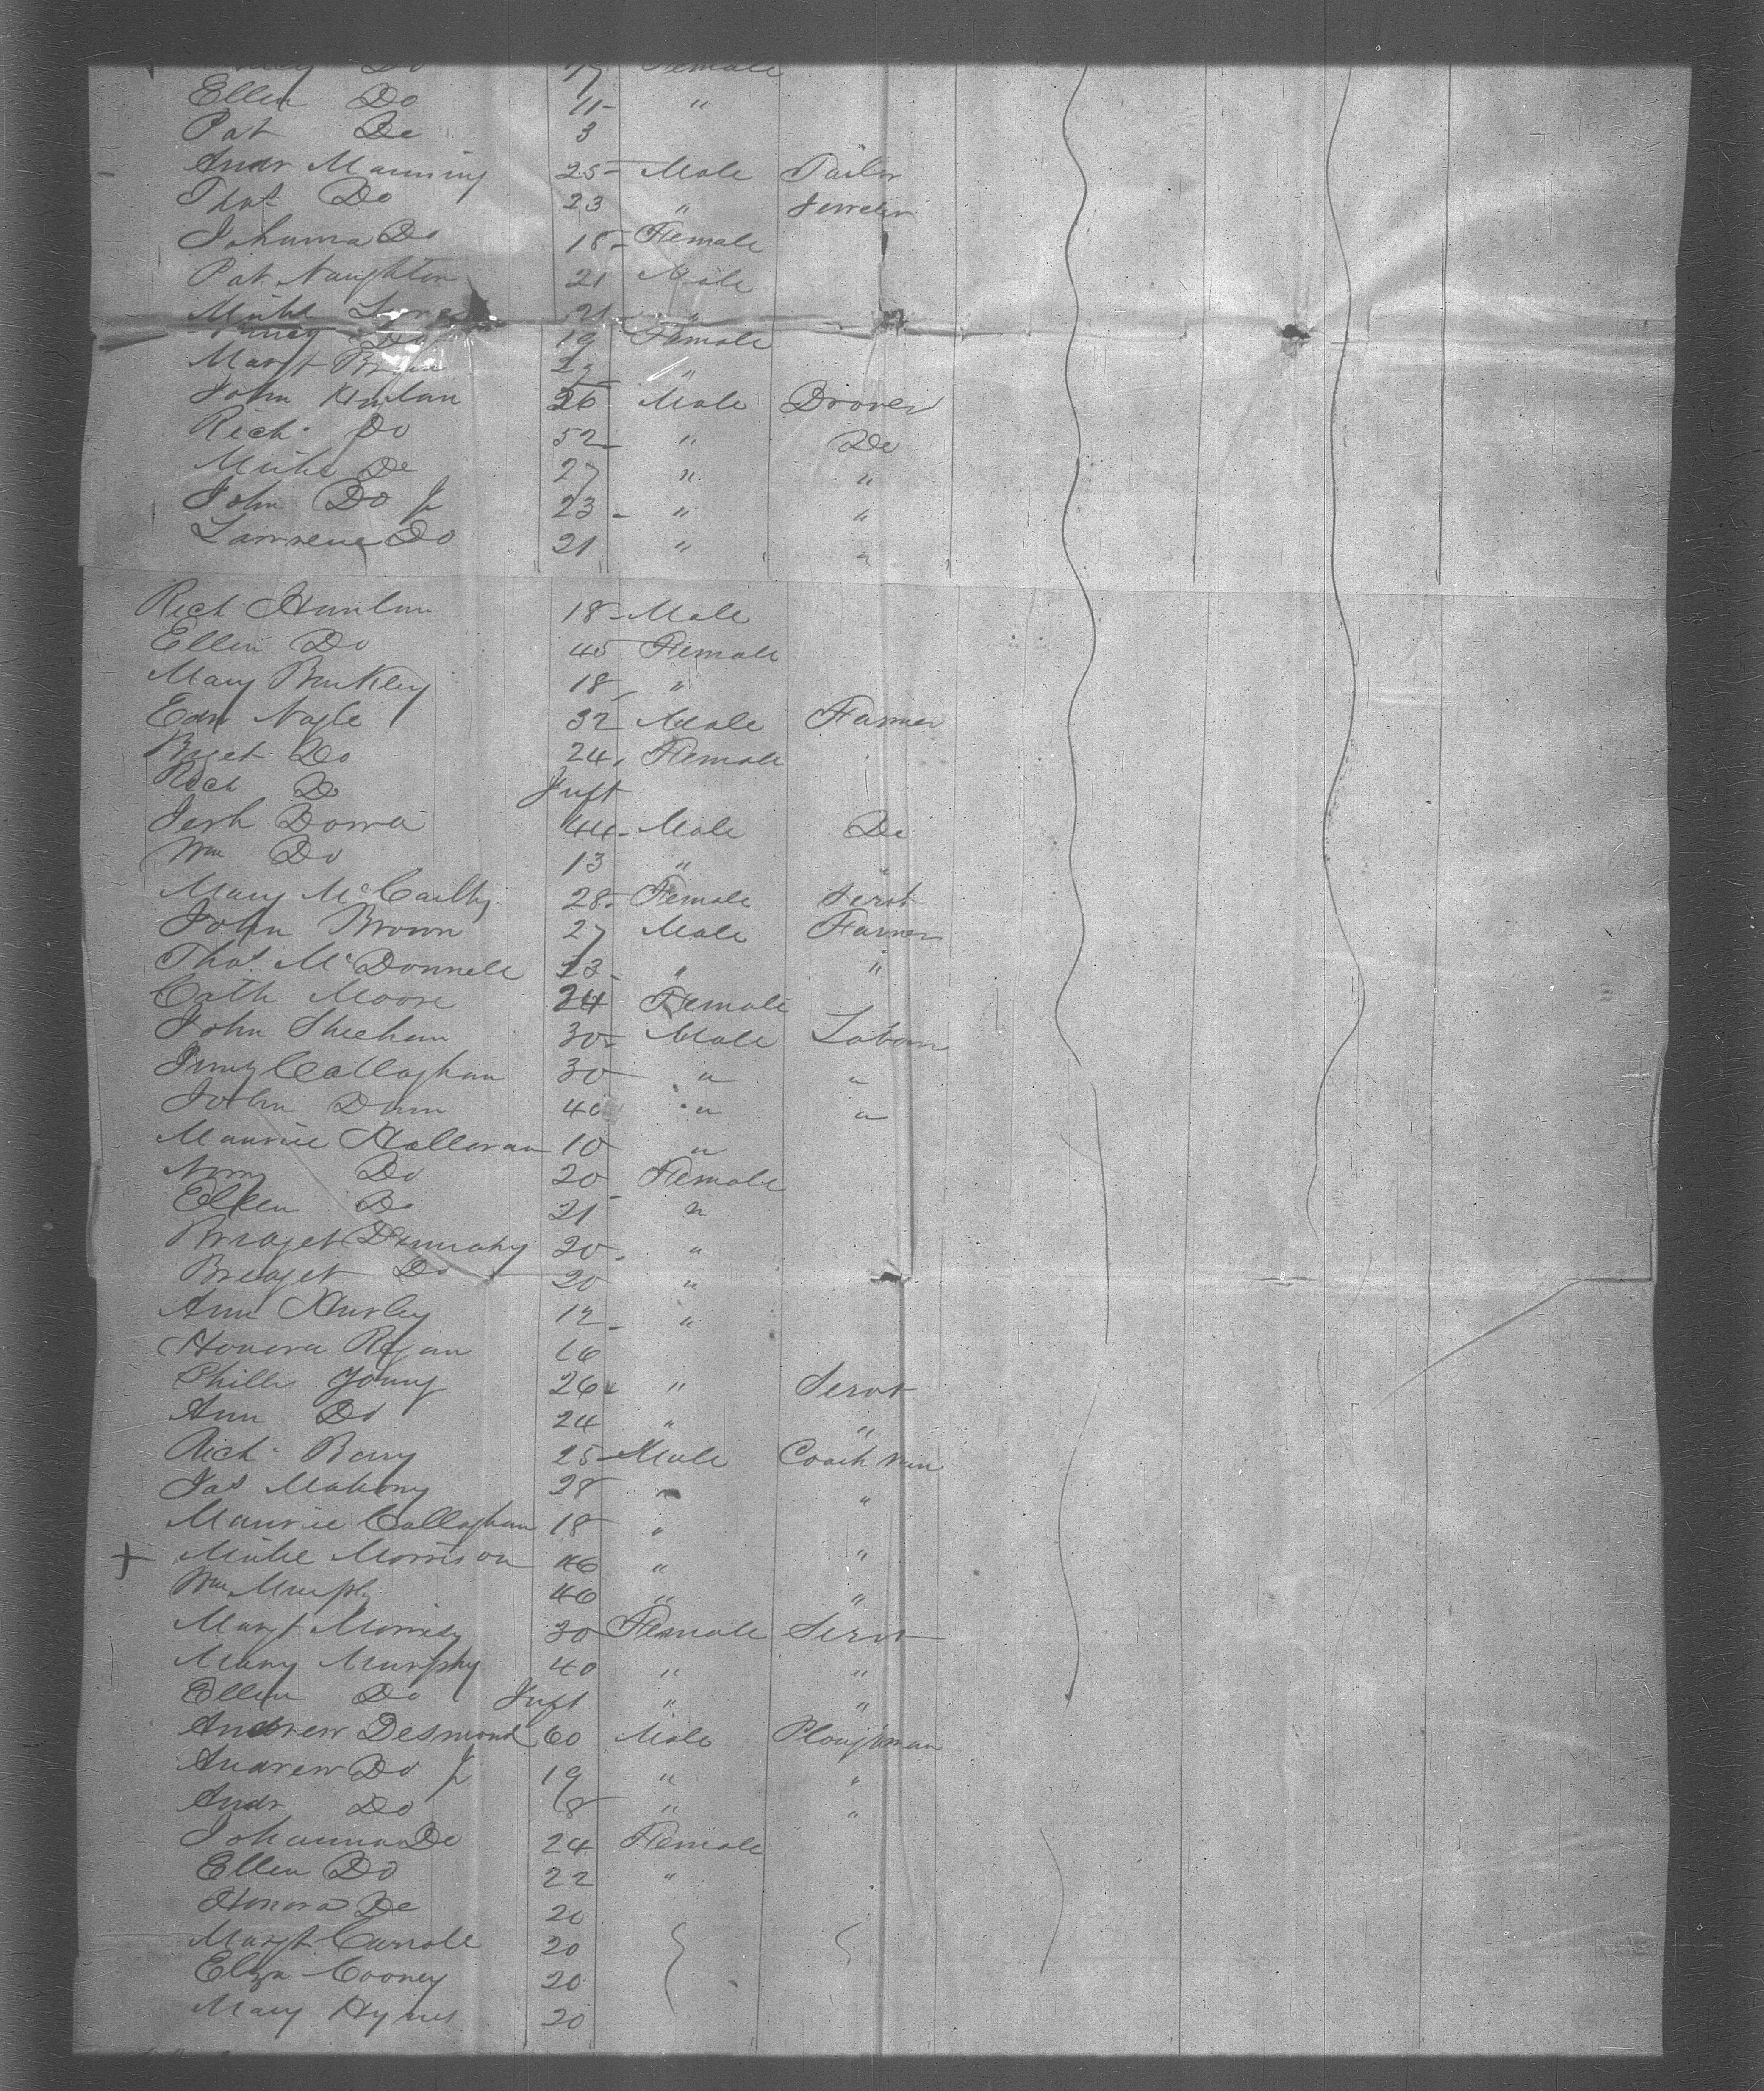 Do Female
Ellen Do 11 "
Pat Do 3
Andr Manning 25 Male Tailor
Thos Do 23 " Jeweler
Johanna Do 18 Female
Pat Naughton 21 Male
Michl 21 "
Do 19 Female
Margt "
John Hanlan 26 Male Drover
Rich Do 52 " Do
Michl Do 27 " "
John Do Jr 23 " "
Lawrence Do 21 " "
Rich Hanlan 18 Male
Ellen Do 45 Female
Mary Buckley 18 "
Edw Nagle 32 Male Farmer
Briget Do 24 Female
Rich Do Inft
Jerh 44 Male Do
Wm Do 13 "
Mary McCarthy 28 Female Servt
John Brown 27 Male Farmer
Thos McDonnell 23 " "
Cath Moore 24 Female
John Sheehan 30 Male Labour
Callaghan 30 " "
John Dunn 40 " "
Maurice Halloran 10 "
Nory Do 20 Female
Ellen Do 21 "
Bridget 20 "
Bridget Do 20 "
Ann Hurley 12 "
Honora Regan 16
Phillis Young 26 " Servt
Ann Do 24 " "
Rich Barry 25 Male Coach man
Jas Mahony 28 " "
Maurice Callaghan 18 "
+ Michl Morrison 46 " "
Wm Murphy 40 " "
Margt Morrisy 30 Female Servt
Mary Murphy 40 " "
Ellen Do Inft " "
Andrew Desmond 60 Male Ploughman
Andrew Do Jr 19 " "
Andr Do 18 " "
Johanna Do 24 Female
Ellen Do 22 "
Honora Do 20
Margt Carroll 20
Eliza Cooney 20
Mary Hynes 20